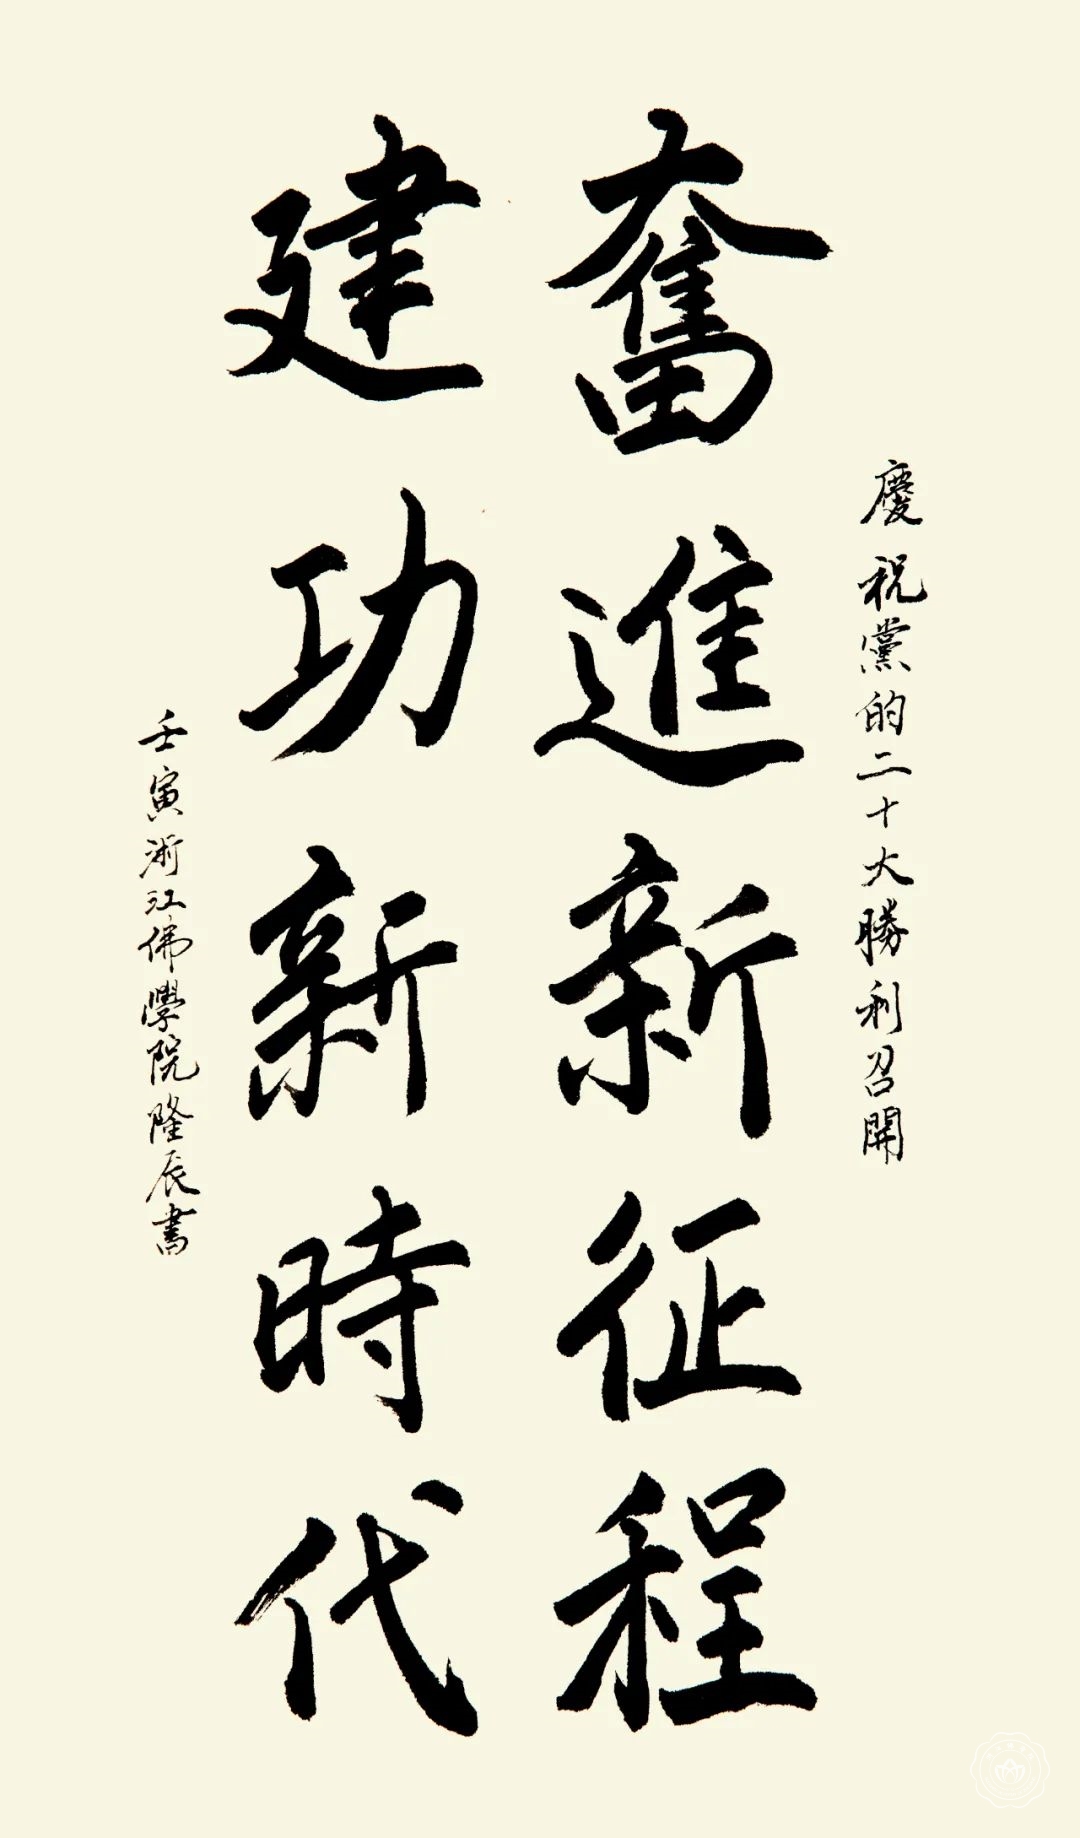 慶祝黨的二十大勝利召開
奮進新征程
建功新時代
壬寅浙江佛學院隆辰書